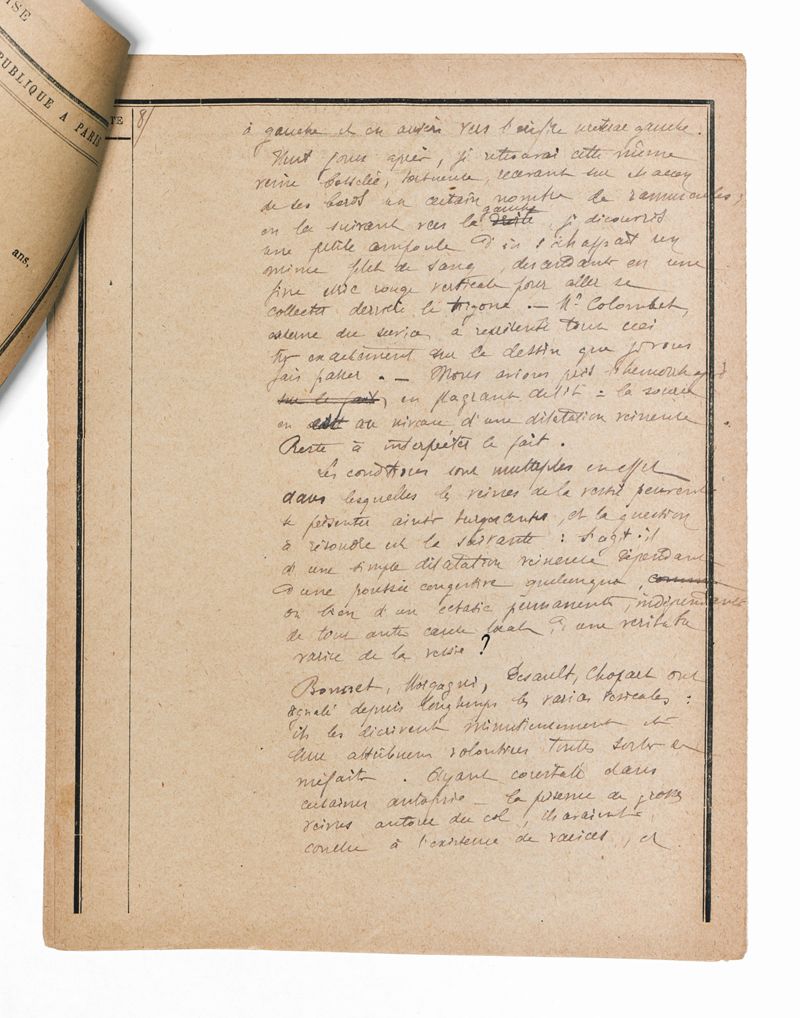 ISE
PUBLIQUE A PARIS
ans,
TE
8/
à gauche et en arrière vers l'orifice uretéral gauche.
Huit jours après, je retrouvai cette même
veine bosselée, tortueuse, recevant sur chacun
de ses bords un certain nombre de ramuscules ;
en la suivant vers la droite gauche je découvris
une petite ampoule d'où s'échappait un
mince filet de sang, descendant en une
fine raie rouge verticale pour aller se
collecter derrière le trigone. — Mr Colombet,
externe du service, a représenté tout ceci
très exactement sur le dessin que je vous
fais passer. — Nous avions pris l'hémorrhagie
sur le fait, en flagrant délit = la source
en était au niveau d'une dilatation veineuse
Reste à interpréter le fait.
Les conditions sont multiples en effet
dans lesquelles les veines de la vessie peuvent
se présenter ainsi turgescentes, et la question
à résoudre est la suivante : s'agit-il
d'une simple dilatation veineuse dépendant
d'une poussée congestive quelconque,
ou bien d'un ectasie permanente, indépendante
de toute autre cause locale, d'une véritable
varice de la vessie ?
Bonnet, Morgagni, Desault, Chopart ont
signalé depuis longtemps les varices vésicales :
ils les décrivent minutieusement et
leur attribuent volontiers toutes sortes de
méfaits. Ayant constaté dans
certaines autopsies la présence de grosses
veines autour du col, ils avaient
conclu à l'existence de varices, et